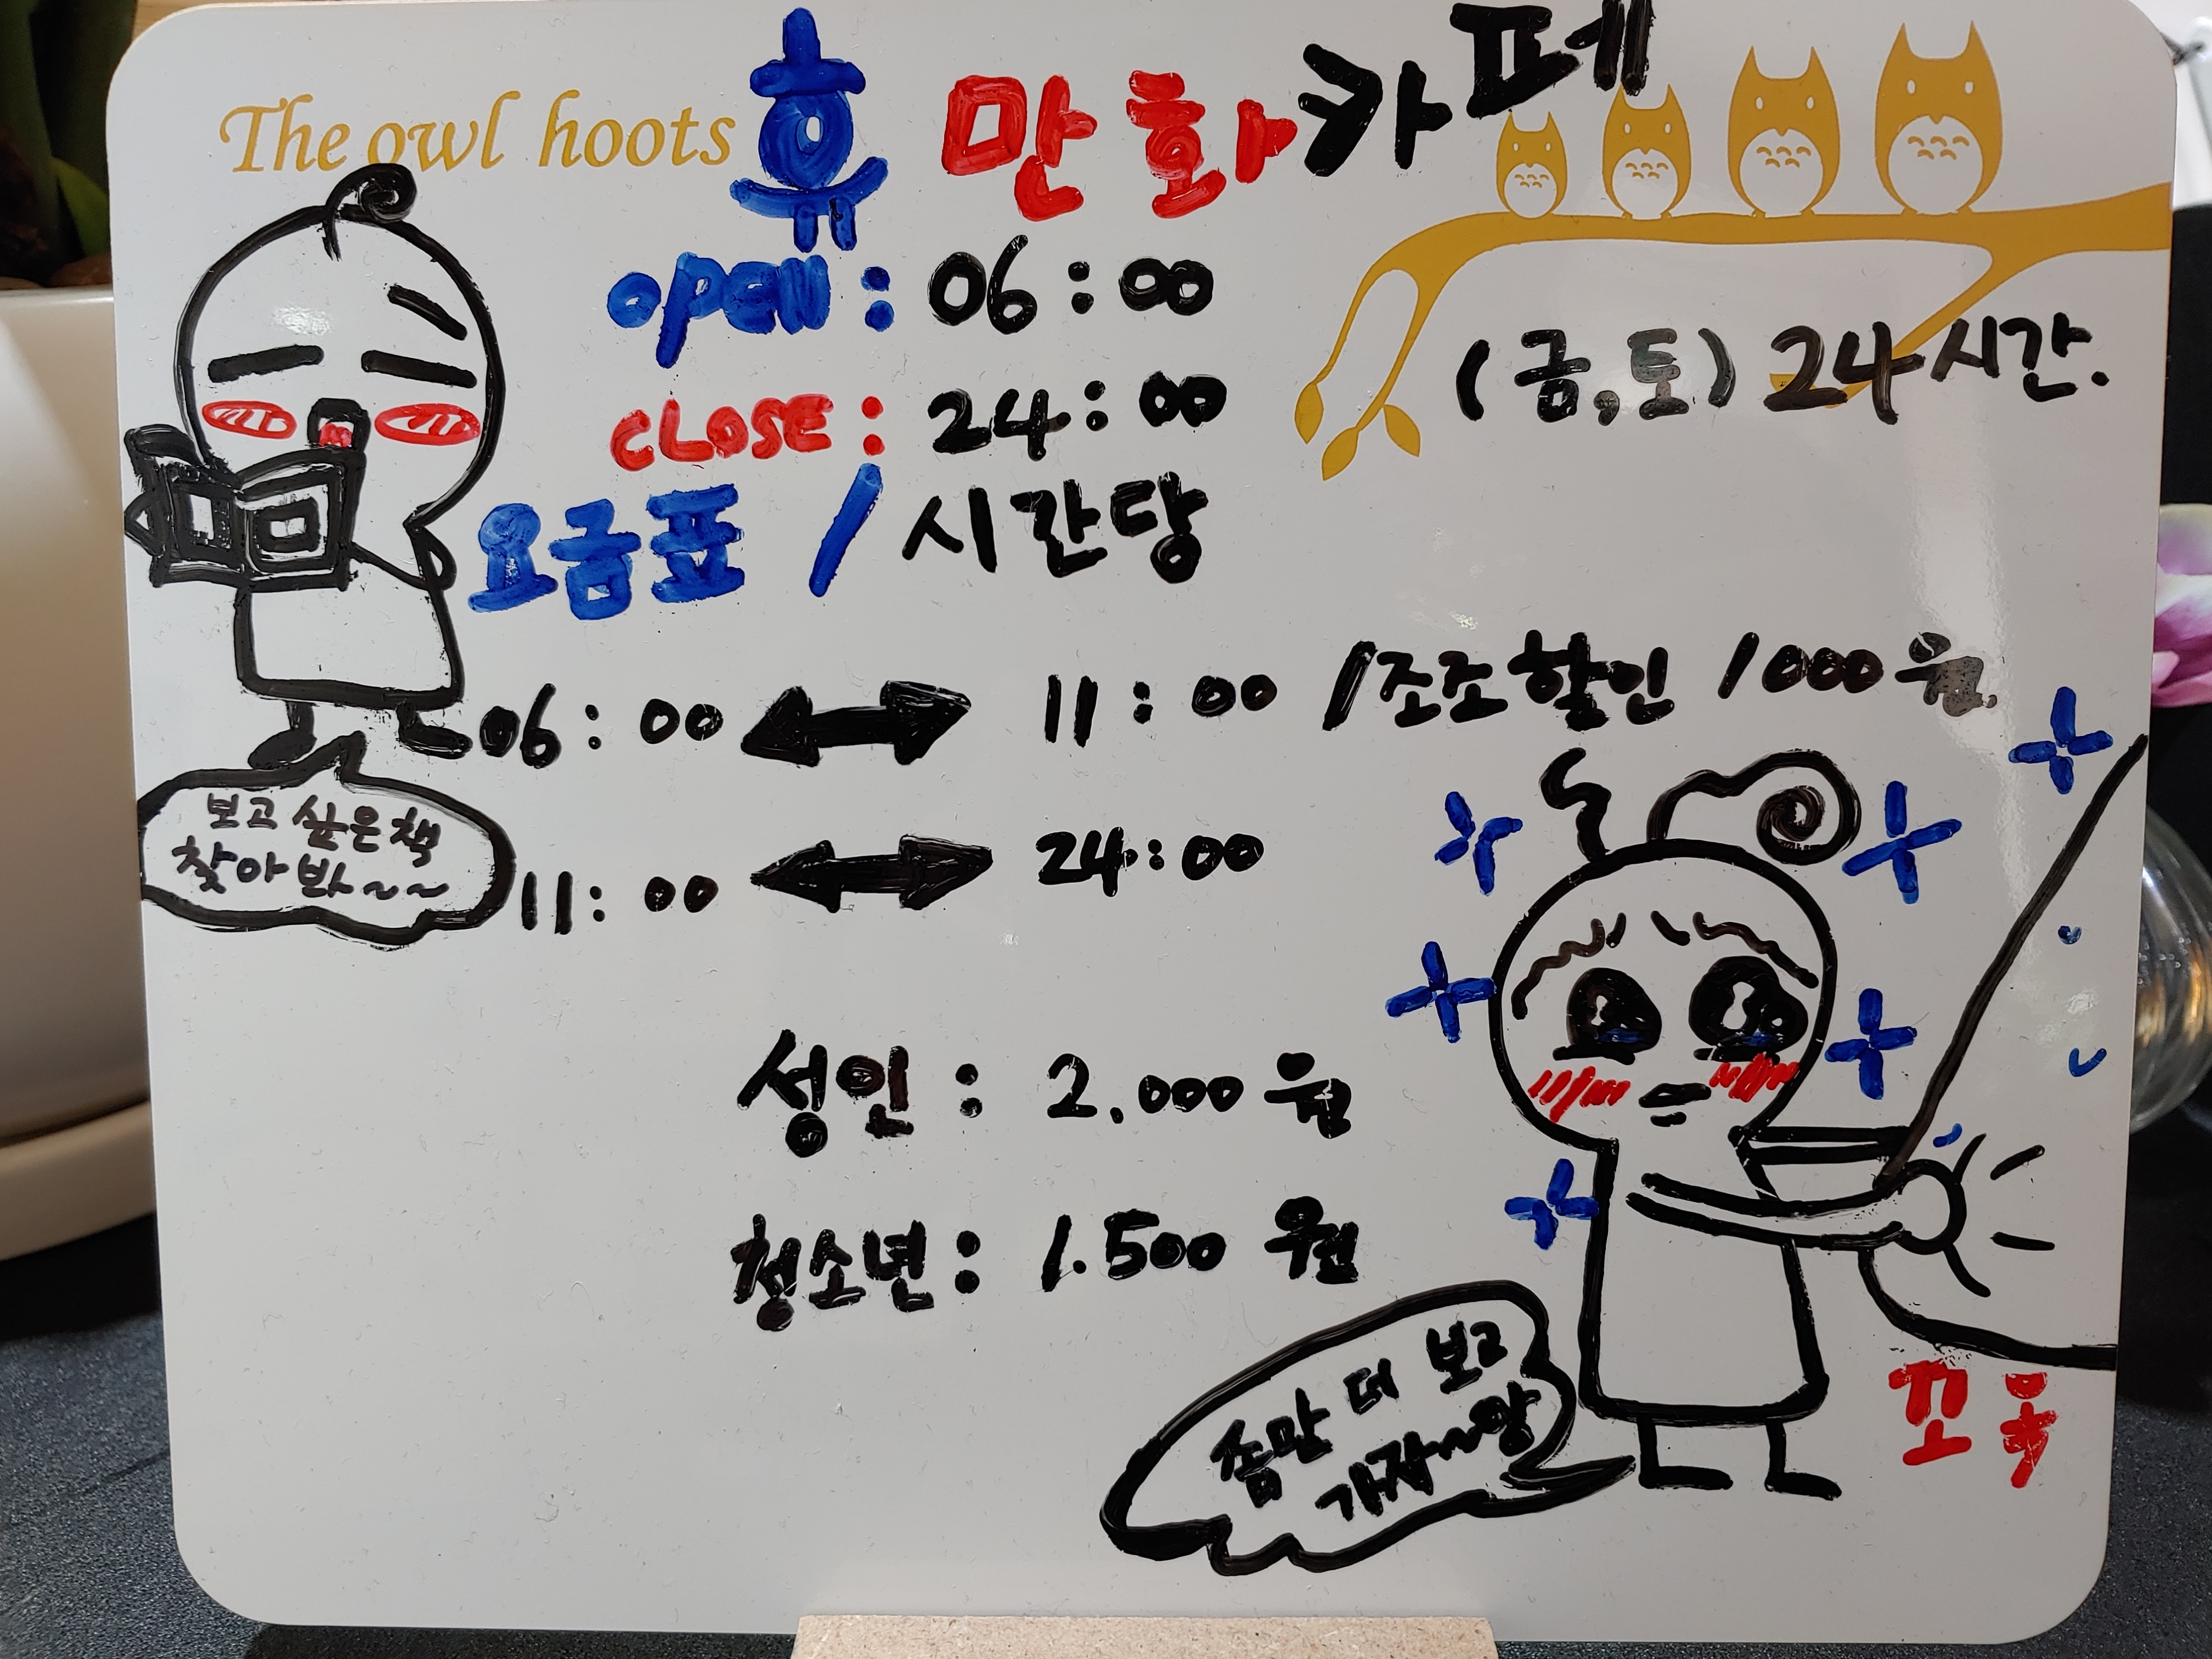 The owl hoots
휴 만화카페
open : 06 : 00
(금,토) 24시간.
CLOSE : 24 : 00
요금표 / 시간당
06 : 00 ↔ 11 : 00 / 조조할인 1000원
보고 싶은 책
찾아봐~~
11 : 00 ↔ 24 : 00
성인 : 2.000 원
청소년 : 1.500 원
좀만 더 보고
가자~~앙
꼬옥